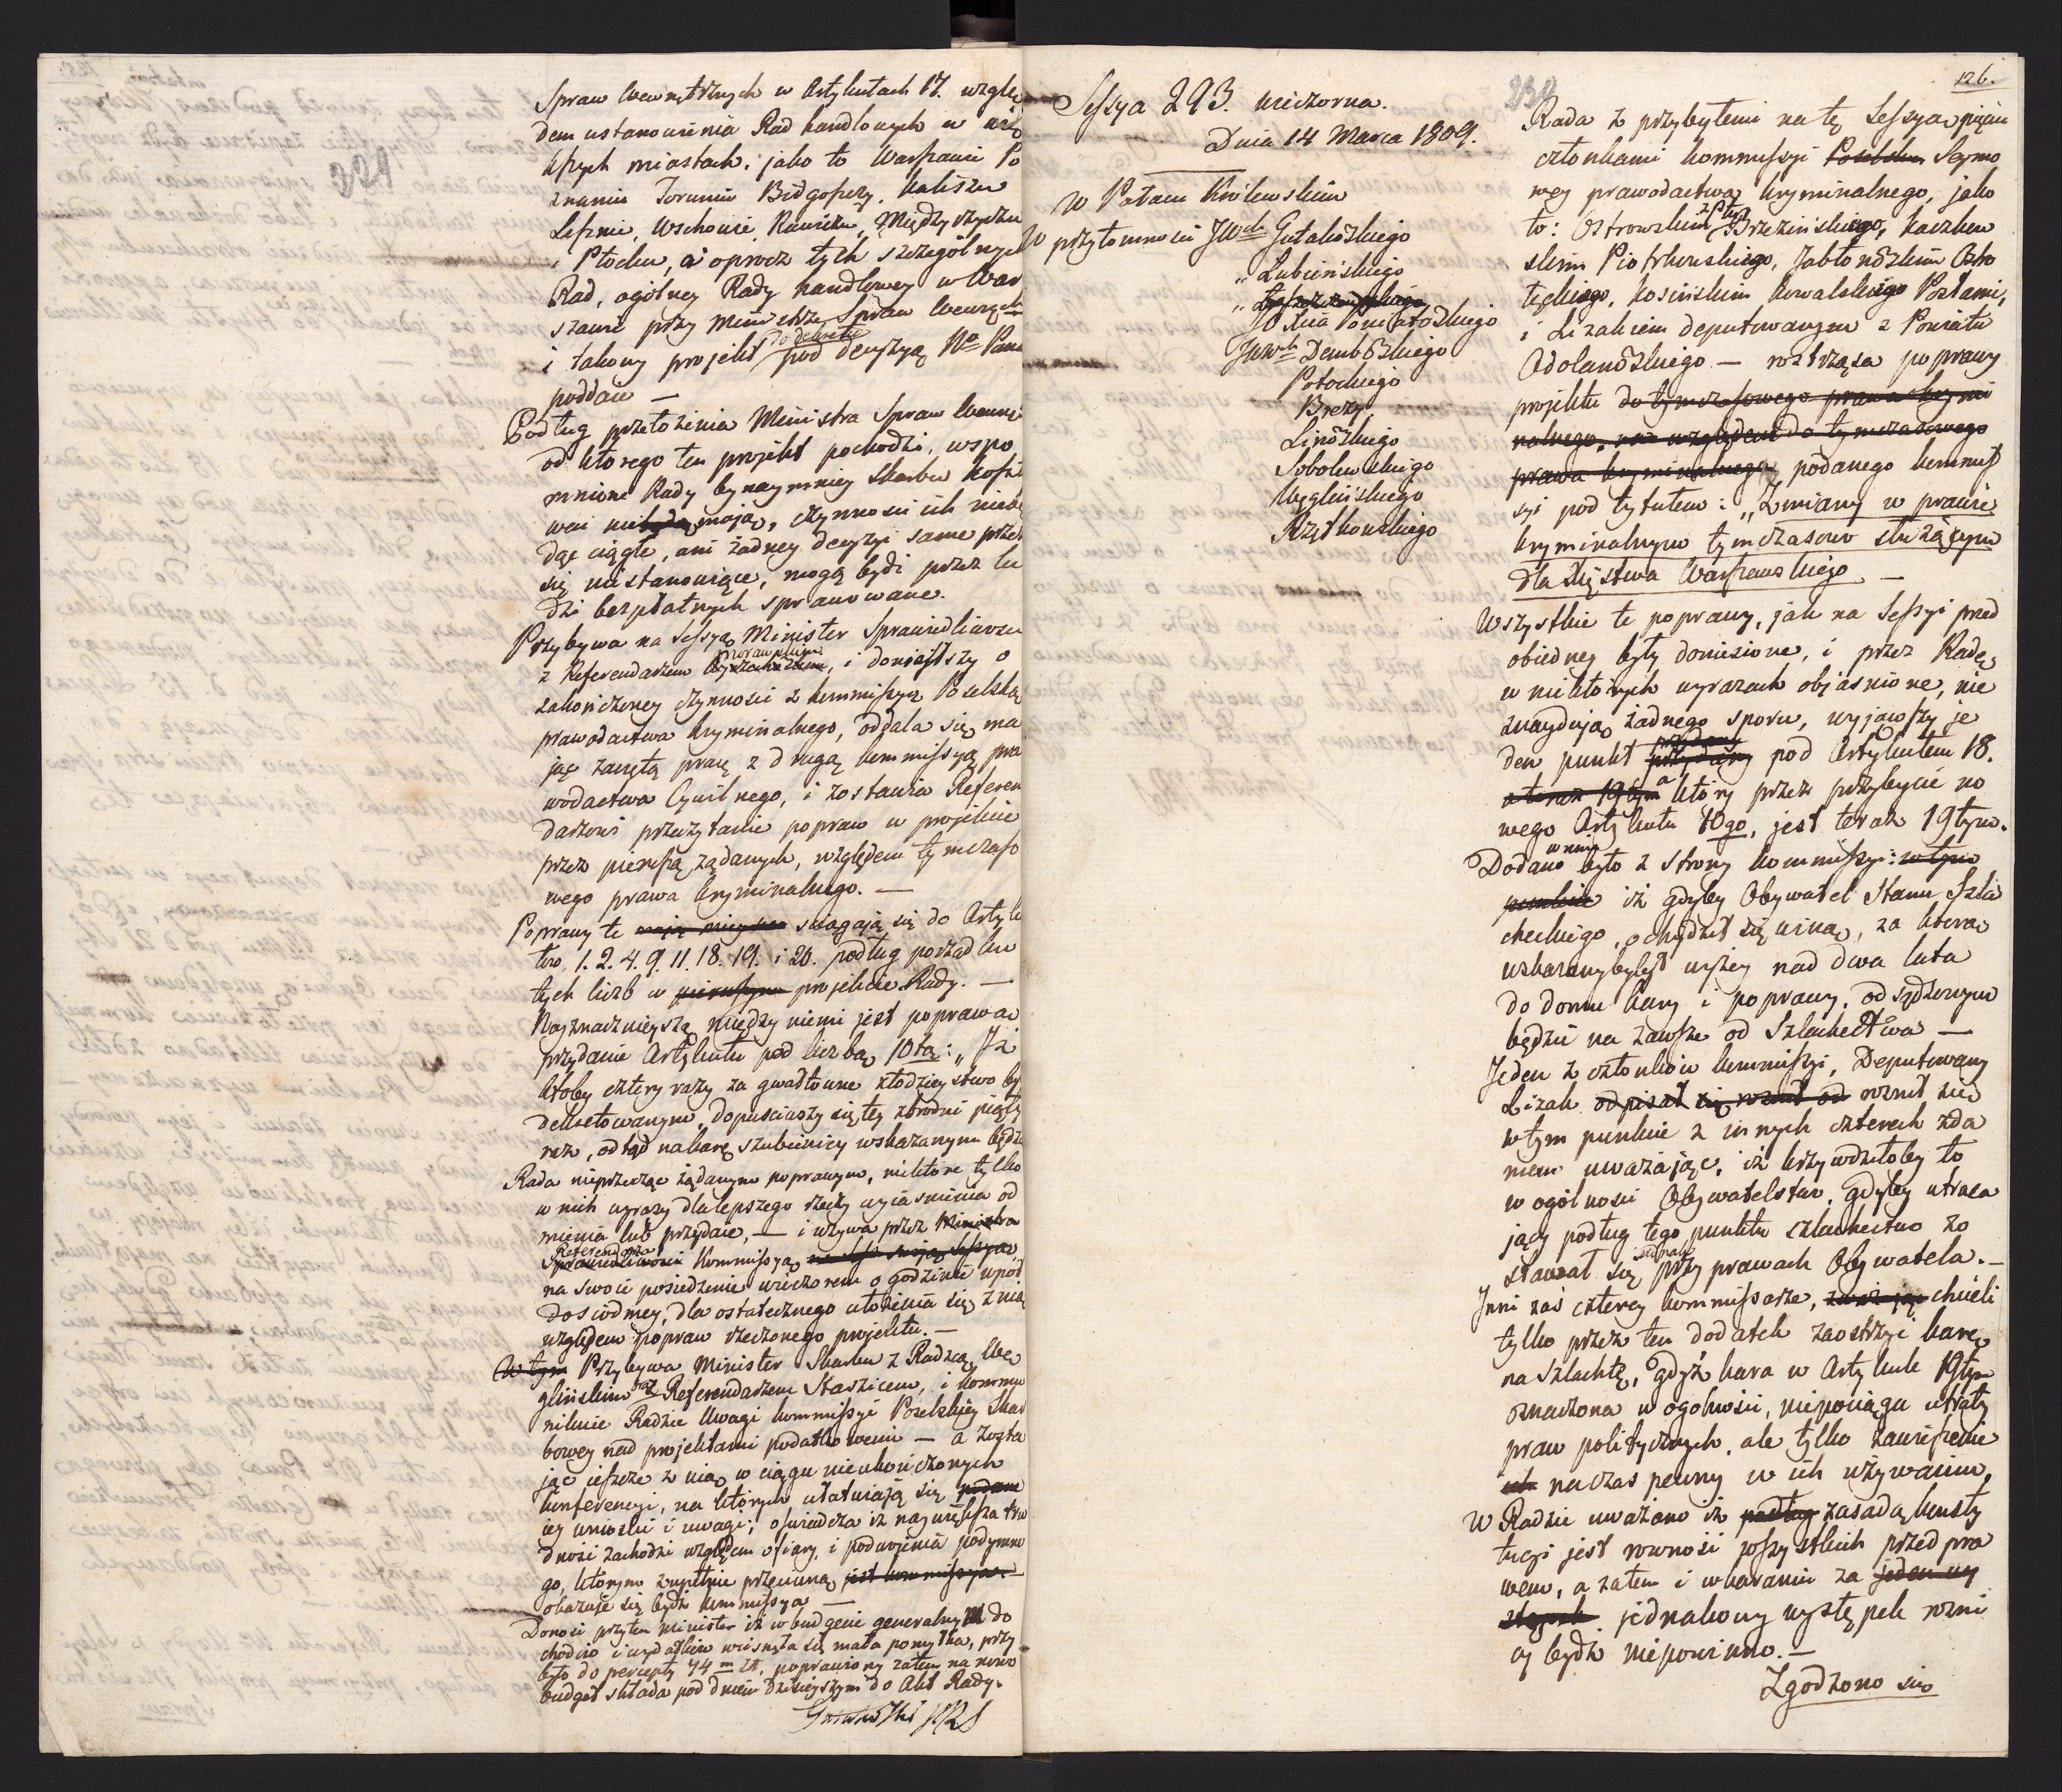 221
Spraw Wewnętrznych w Artykułach 17. wzglę
dem ustanowienia Rad handlowych w wię
kſzych miastach, jako to Warſzawie Po
znaniu Toruniu Bidgoſzczy, Kaliszu
Leſznie, Wschowie, Rawiczu, Międzyrzyczu
i Płocku, a oprocz tych szczegolnych
Rad, ogolney Rady handlowey w War
szawie przy Ministrze Spraw Wewnętr
i takowy projekt do dekretu pod decyzyą No Pana
poddaie —
Podług przełożenia Ministra Spraw Wewnę
od ktorego ten projekt pochodzi, wspo
mnione Rady bynaymniey Skarbu koſzto
wać nie mają, czynności ich nieb
dąc ciągłe, ani żadney decyzyi same przez
się niestanowiące, mogą bydź przez lu
dzi bezpłatnych sprawowane.
Przybywa na Seſsyą Minister Sprawiedliwości
z Referendarzem Morawskim, i doniosłszy o
zakończoney czynności z kommiſsyą Poselską
prawodactwa kryminalnego, oddala się ma
jąc zaczętą pracę z drugą kommiſsyą pra
wodactwa Cywilnego, i zostawia Referen
darzowi przeczytanie popraw w projekcie
przez pierwſzą żądanych, względem tymczaſo
wego prawa kryminalnego. —
Poprawy te ściągają się do Artyku
łow, 1. 2. 4. 9. 11. 18. 19. i 20. podług porządku
tych liczb w projekcie Rady. —
Nayznacznieyszą między niemi jest poprawa
przydanie Artykułu pod liczbą 10tą: „Iż
ktoby cztery razy za gwałtowne złodzieystwo by
dekretowanym, dopuściwszy się tey zbrodni piąty
raz, odtąd na karę szubienicy wskazanym będzie
Rada nieprzecząc żądanym poprawom, niektore tylko
w nich wyrazy dla lepszego rzeczy wyiaśnienia od
mienia lub przydaie, — i wzywa przez Ministra
Referendarza Sprawiedliwości Kommiſsyą
na swoie posiedzenie wieczorem o godzinie wpoł
do siodmey, dla ostatecznego ułożenia się z nią
względem popraw rzeczonego projektu. —
W tym Przybywa Minister Skarbu z Radzcą Wę
glińskim i Referendarzem Staszicem, i kommu
nikuie Radzie Uwagi kommiſsyi Poselskiey Skar
bowey nad projektami podatkowemi — a zosta
jąc ieſzcze z nią w ciągu nieukończonych
konferencyi, na ktorych ułatwiają się
iey wnioski i uwagi; oświadcza iż naywiękſza tru
dność zachodzi względem ofiary, i podwojenia podymne
go, ktorym zupełnie przeciwną
okazuje się bydź kommiſsya —
Donosi przytem Minister iż w budgecie generalnym do
chodow i wydatkow wcisnęła się mała pomyłka, przy
było do percepty 74 m zł. poprawiony zatem na nowo
budget składa pod dniem dzisieyszym do Akt Rady.
Seſsya 293. wieczorna.
Dnia 14 Marca 1809.
W Pałacu Krolewskim
W przytomności JWch Gutakowskiego
„ Lubieńskiego
Xcia Poniatowskiego
JWWch Dembowskiego
Potockiego
Brezy,
Linowskiego
Sobolewskiego
Węglińskiego
Rzętkowskiego
126.
Rada z przybyłemi na tę Seſsyą pięciu
członkami kommiſsyi Poselskiey Seymo
wey prawodactwa kryminalnego, jako
to: Ostrowskim z Ptu Brzezińskiego, Kaczkow
skim Piotrkowskiego, Jabłonowskim Osto
łęckiego, Kosińskim Kowalskiego Posłami,
i Lizakiem deputowanym z Powiatu
Odolanowskiego — roztrząsa poprawy
projektu do tymczaſowego prawa krymi
nalnego, względem do tymczasowego
prawa kryminalnego podanego kommiſ
syi pod tytułem: „Zmiany w prawie
kryminalnym tymczasowo służącym
dla Xięstwa Warſzawskiego —
Wszystkie te poprawy, jak na Seſsyi przed
obiedney były doniesione, i przez Radę
w niektorych wyrazach objaśnione, nie
znayduią żadnego sporu, wyjąwſzy je
den punkt przydany pod Artykułem 18.
a teraz 19tym a ktory przez przybycie no
wego Artykułu 10go, jest teraz 19tym.
Dodano w nim było z strony kommiſsyi: w tym
punkcie iż gdyby Obywatel Stanu Szla
checkiego, ochydził się winą, za ktorą
wskazany byłby wyżey nad dwa lata
do domu kary i poprawy, odsądzonym
będzie na zawſze od Szlachectwa —
Jeden z członkow kommiſsyi, Deputowany
Lizak odpisał się roznił od roznił się
w tym punkcie z innych czterech zda
niem uważając, iż krzywdziłoby to
w ogolności Obywatelstwo, gdyby utraca
jący podług tego punktu szlachectwo zo
stawał się jednak przy prawach Obywatela. —
Inni zaś czterey kommiſsarze, chcieli
tylko przez ten dodatek zaostrzyć karę
na Szlachtę, gdyż kara w Artykule 19tym
oznaczona w ogolności, niepociąga utraty
praw politycznych, ale tylko zawieſzenie
ich na czas pewny w ich używaniu.
W Radzie uważano iż podług zasadą konsty
tucyi jest rowność wſzystkich przed pra
wem, a zatem i w karaniu za jeden wy
stępek jednakowy występek rożni
cy bydź niepowinno. —
Zgodzono się